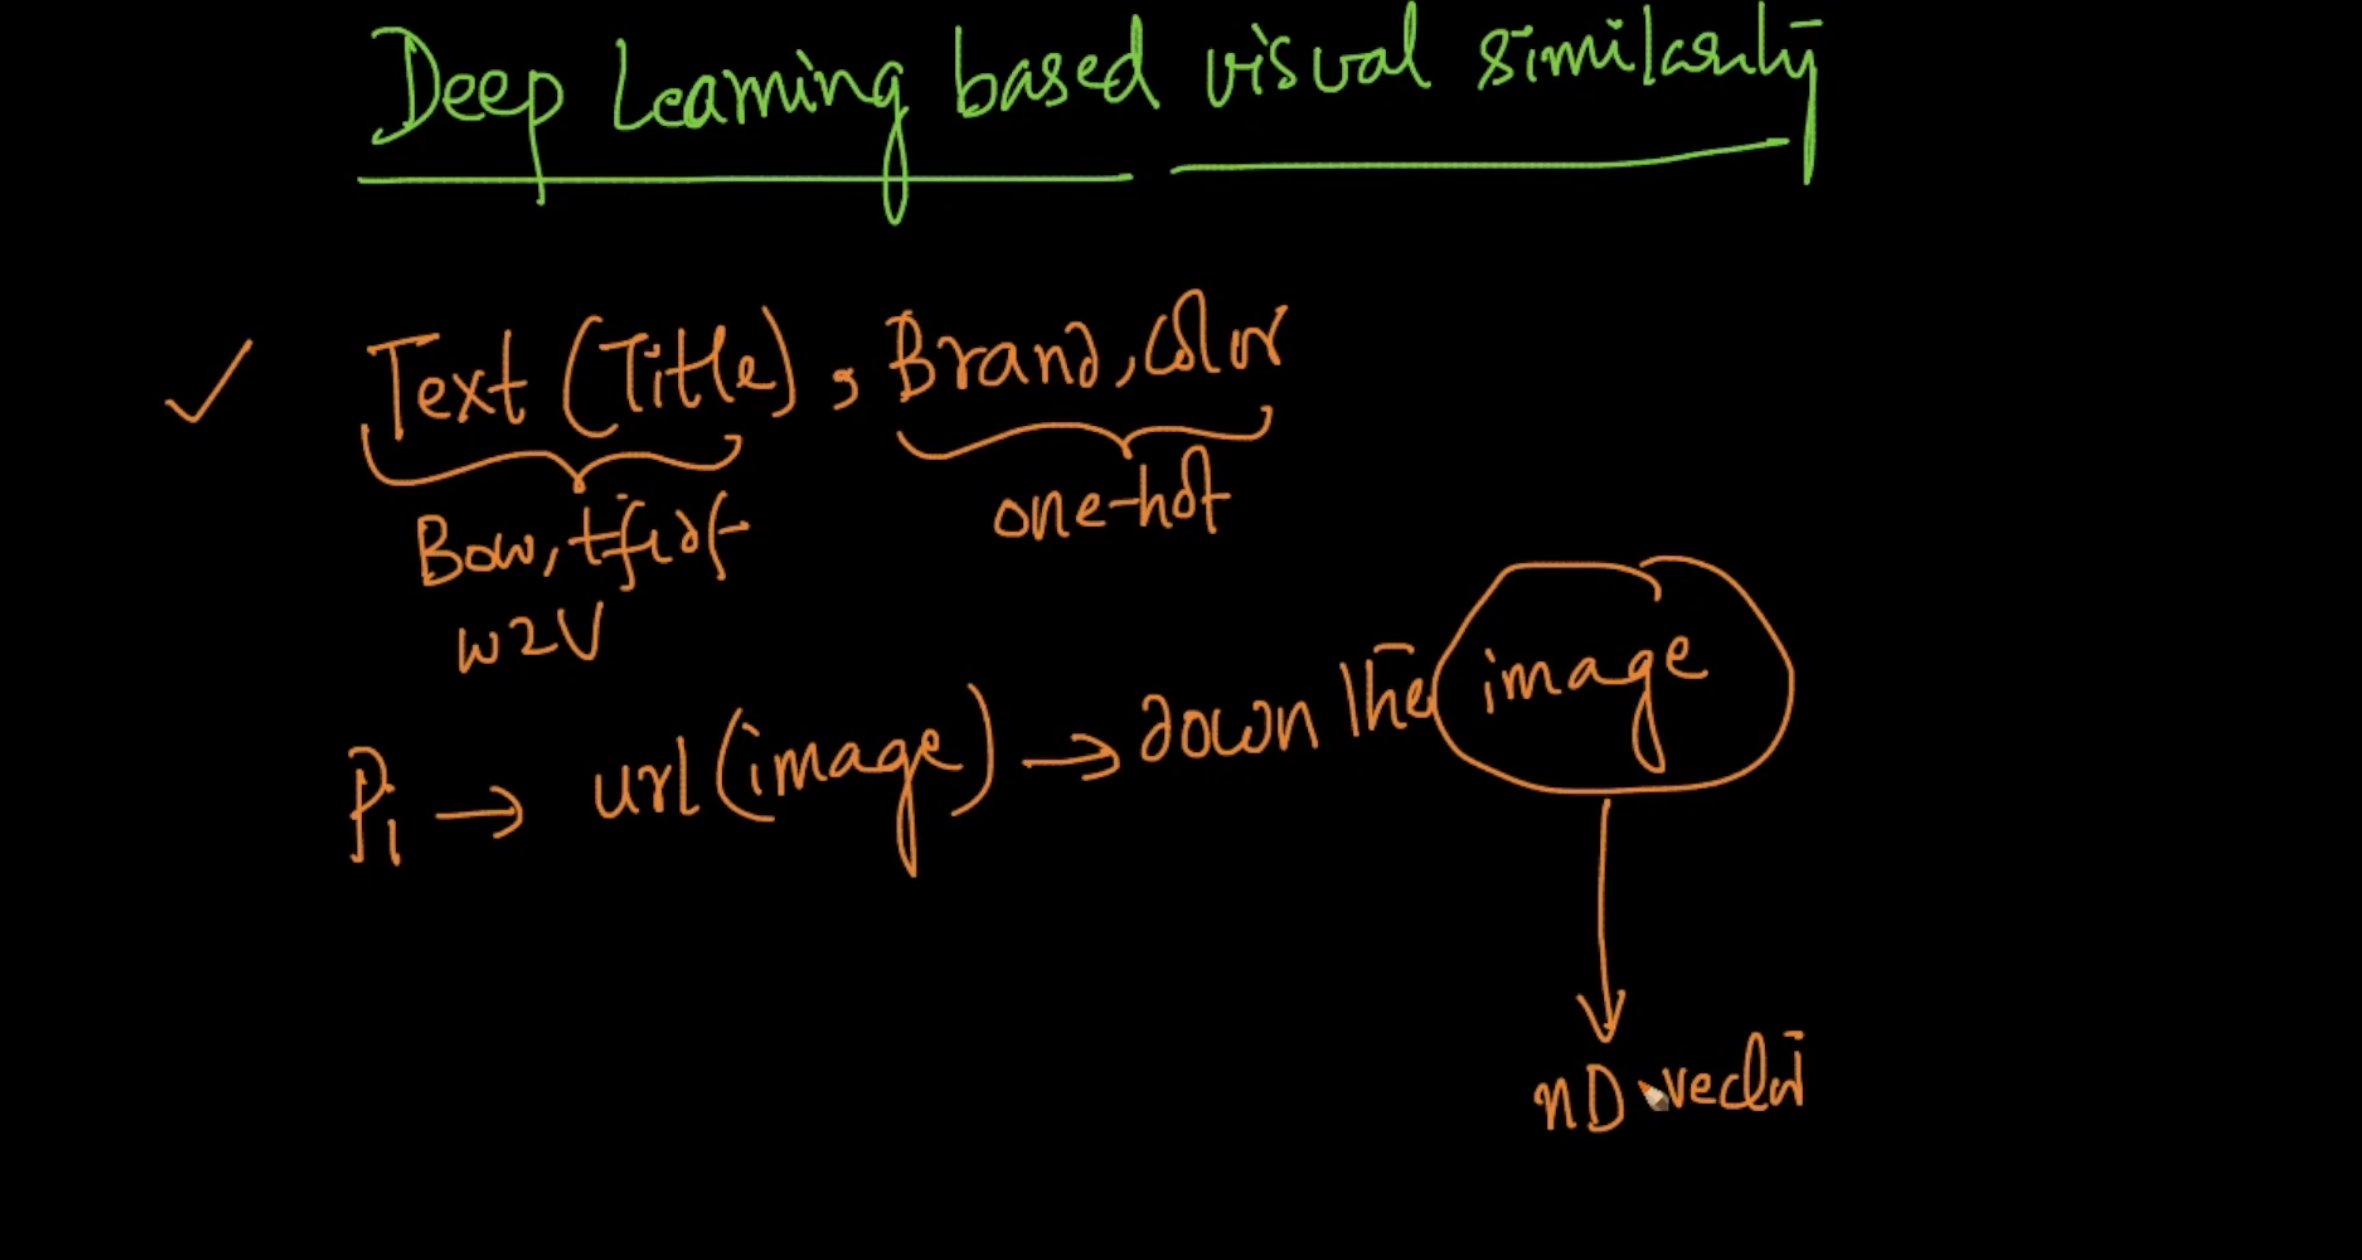 Deep Learning based visual similarity
Text (Title), Brand, Color
Bow, tfidf one-hot
w2v
P1 → url (image) → down the image
nD vector